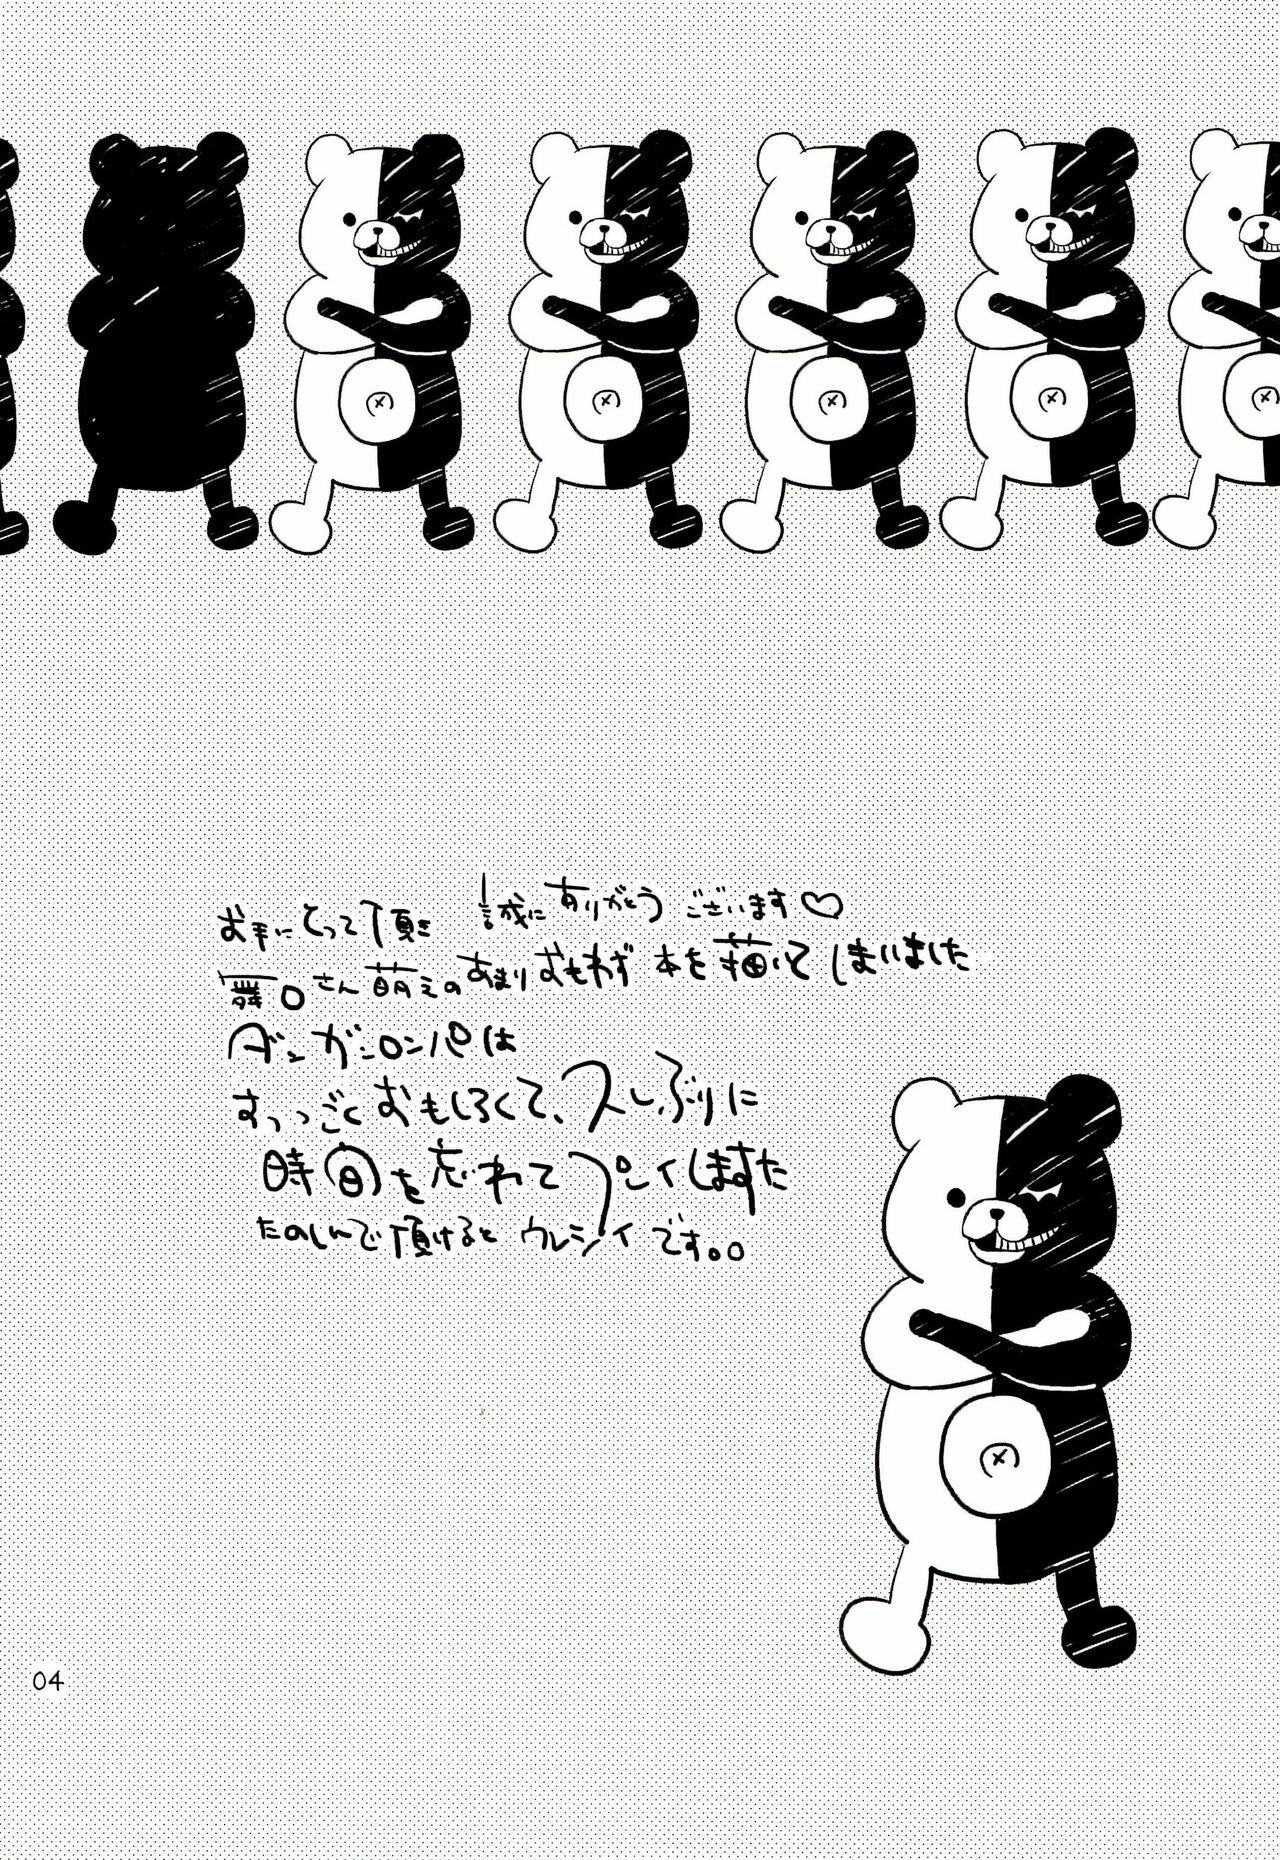 お手にとって頂き 誠にありがとうございます♡
舞園さん萌えのあまりおもわず本を描いてしまいました
ダンガンロンパは
すっっごくおもしろくて、久しぶりに
時間を忘れてプレイしますた
たのしんで頂けるとウレシイです。。
04